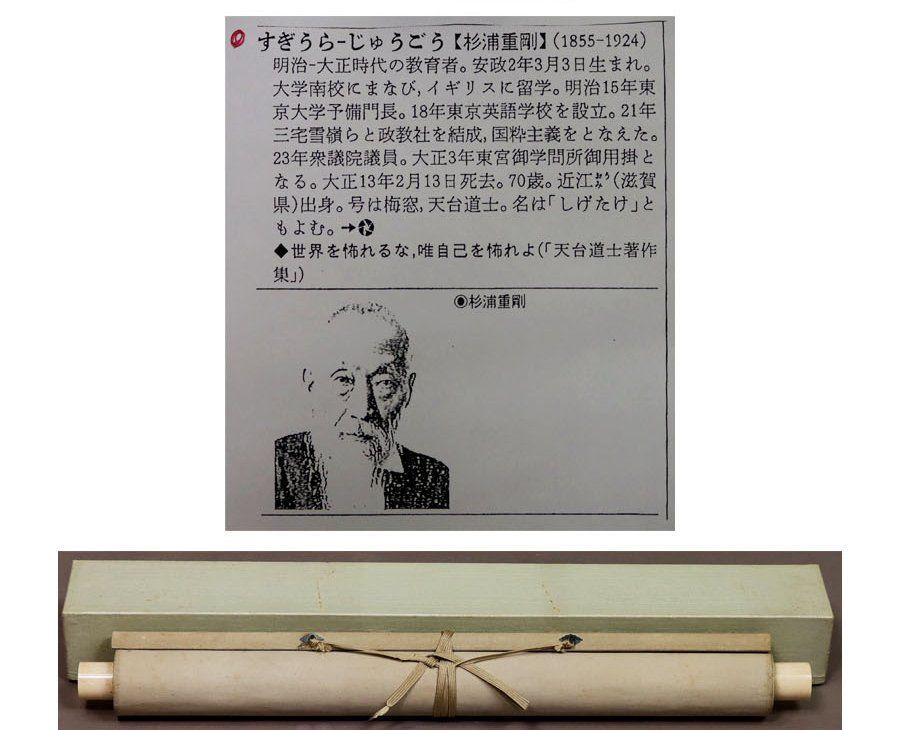 すぎうら-じゅうごう【杉浦重剛】(1855-1924)
明治-大正時代の教育者。安政2年3月3日生まれ。
大学南校にまなび,イギリスに留学。明治15年東
京大学予備門長。18年東京英語学校を設立。21年
三宅雪嶺らと政教社を結成,国粋主義をとなえた。
23年衆議院議員。大正3年東宮御学問所御用掛と
なる。大正13年2月13日死去。70歳。近江(滋賀
県)出身。号は梅窓,天台道士。名は「しげたけ」と
もよむ。→
◆世界を怖れるな,唯自己を怖れよ(「天台道士著作
集」)
◉杉浦重剛